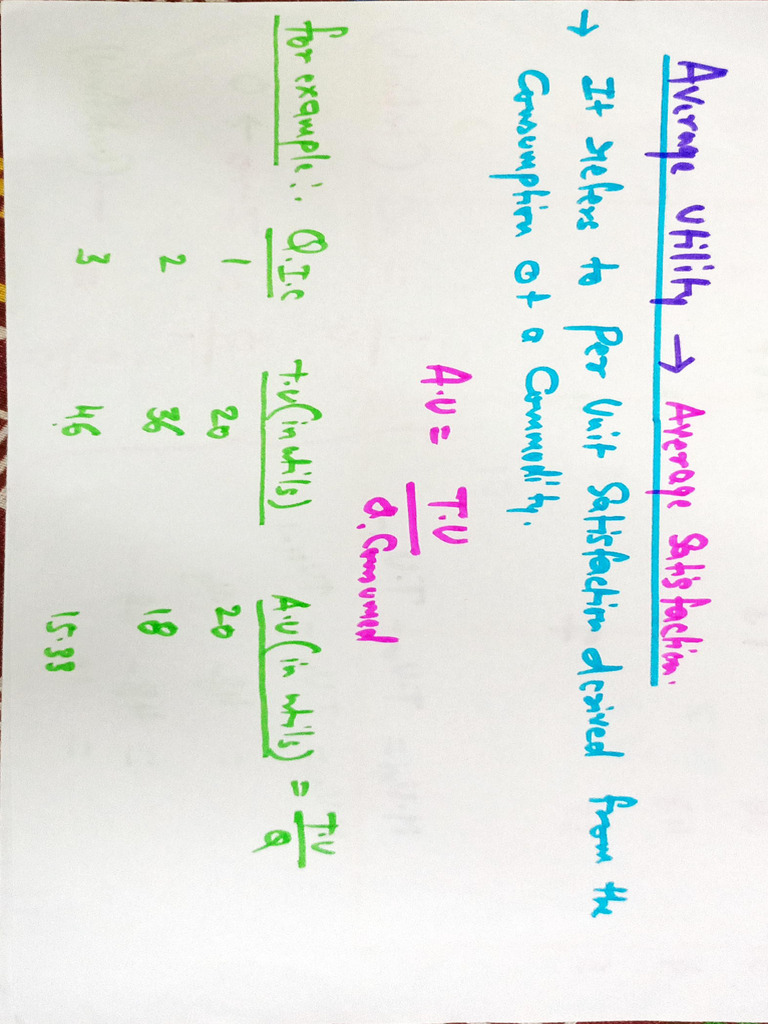 Average Utility → Average Satisfaction.
→ It refers to Per Unit Satisfaction derived from the
Consumption of a Commodity.
A.U = T.U
Q. Consumed
for example:- Q.I.C T.U (in utils) A.U (in utils) = T.U
Q
1 20 20
2 36 18
3 46 15.33